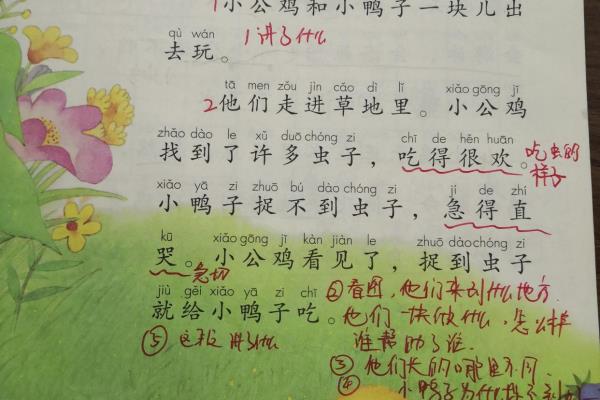 1小公鸡和小鸭子一块儿出
qù wán
去玩。 1讲了什么
tā men zǒu jìn cǎo dì lǐ xiǎo gōng jī
2他们走进草地里。小公鸡
zhǎo dào le xǔ duō chóng zi chī de hěn huān
找到了许多虫子,吃得很欢。吃虫的
样子
xiǎo yā zi zhuō bú dào chóng zi jí de zhí
小鸭子捉不到虫子,急得直
kū xiǎo gōng jī kàn jiàn le zhuō dào chóng zi
哭。小公鸡看见了,捉到虫子
急切
jiù gěi xiǎo yā zi chī ②看图,他们来到什么地方.
就给小鸭子吃。他们一块做什么,怎么样
⑤ 这段讲了什么 谁帮助了谁.
③他们长的哪里不同.
④ 小鸭子为什么捉不到